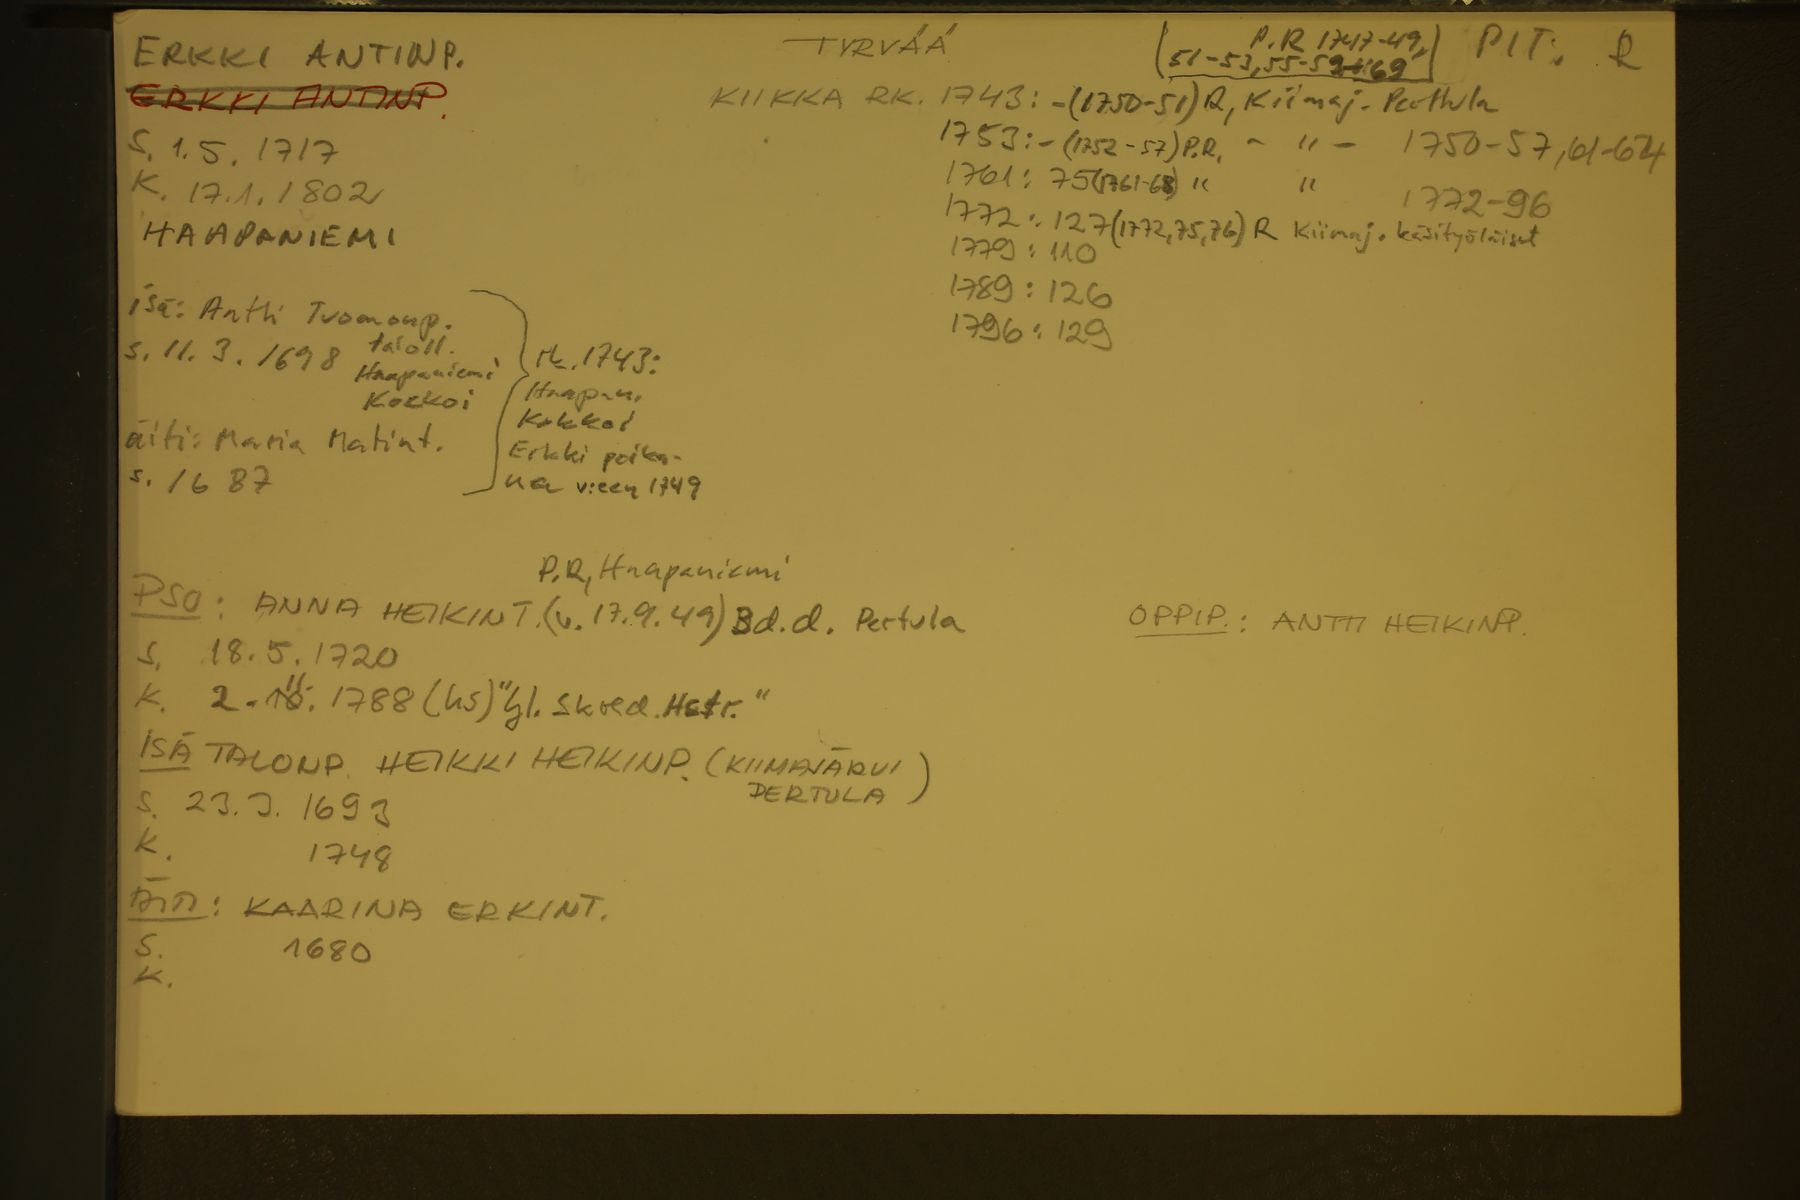 ERKKI ANTINP.
ERKKI ANTINP.
S. 1.5. 1717
K. 17.1. 1802
HAAPANIEMI
TYRVÄÄ
(P.R 1747-49,
51-53, 55-59+69)
PIT: R
KIIKKA RK. 1743: -(1750-51) R, Kiimaj. Perttula
1753: - (1752-57) P.R, - " - 1750-57, 61-64
1761: 75 (1761-68) " " 1772-96
1772: 127 (1772, 75, 76) R Kiimaj. käsityöläiset
1779: 110
1789: 126
1796: 129
isä: Antti Tuomonp.
s. 11. 3. 1698 taloll.
Haapaniemi
Kokkoi
äiti: Maria Matint.
s. 1687
rk. 1743:
Haapan.
Kokkoi
Erkki poika-
na vielä 1749
P.R, Haapaniemi
PSO: ANNA HEIKINT. (v. 17.9.49) Bd.d. Pertula
S. 18.5. 1720
K. 2.11. 1788 (hs) "gl. Skred. Hstr."
ISÄ TALONP. HEIKKI HEIKINP. (KIIMAJÄRVI
PERTULA)
S. 23.3. 1693
K. 1748
ÄITI: KAARINA ERKINT.
S. 1680
K.
OPPIP.: ANTTI HEIKINP.